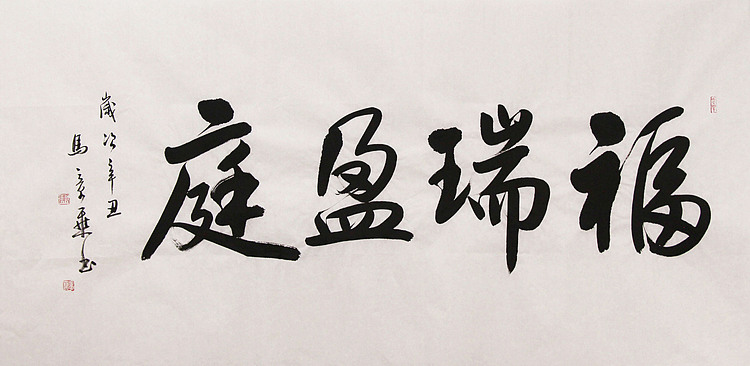 福瑞盈庭
歲次辛丑
馬彥華书